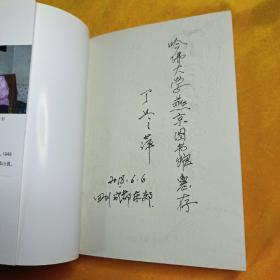 哈佛大学燕京图书馆惠存
丁公之萍
2018.6.6
四川成都东郊